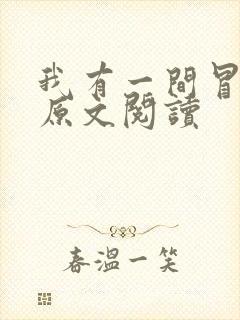 我有一間冒
原文閱讀
春溫一笑